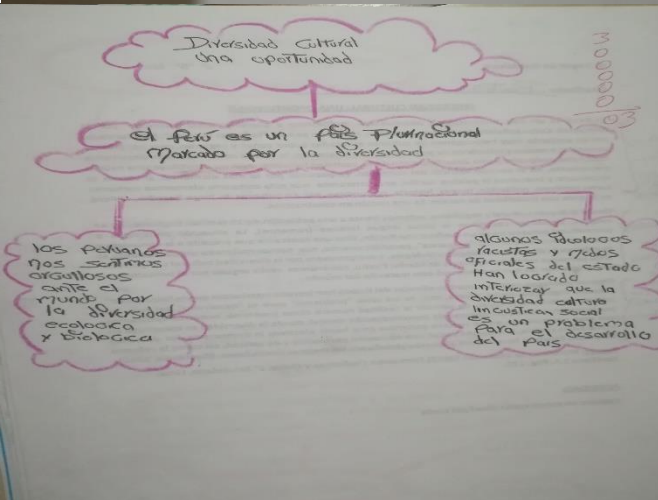 Diversidad Cultural
una oportunidad
3
0
0
0
0
03
el Perú es un País Plurinacional
Marcado por la diversidad
los peruanos
nos sentimos
orgullosos
ante el
mundo por
la diversidad
ecologica
y biologica
algunos ideologos
racistas y medos
oficiales del estado
Han logrado
interiozar que la
diversidad cultura
social
es un problema
para el desarrollo
del Pais